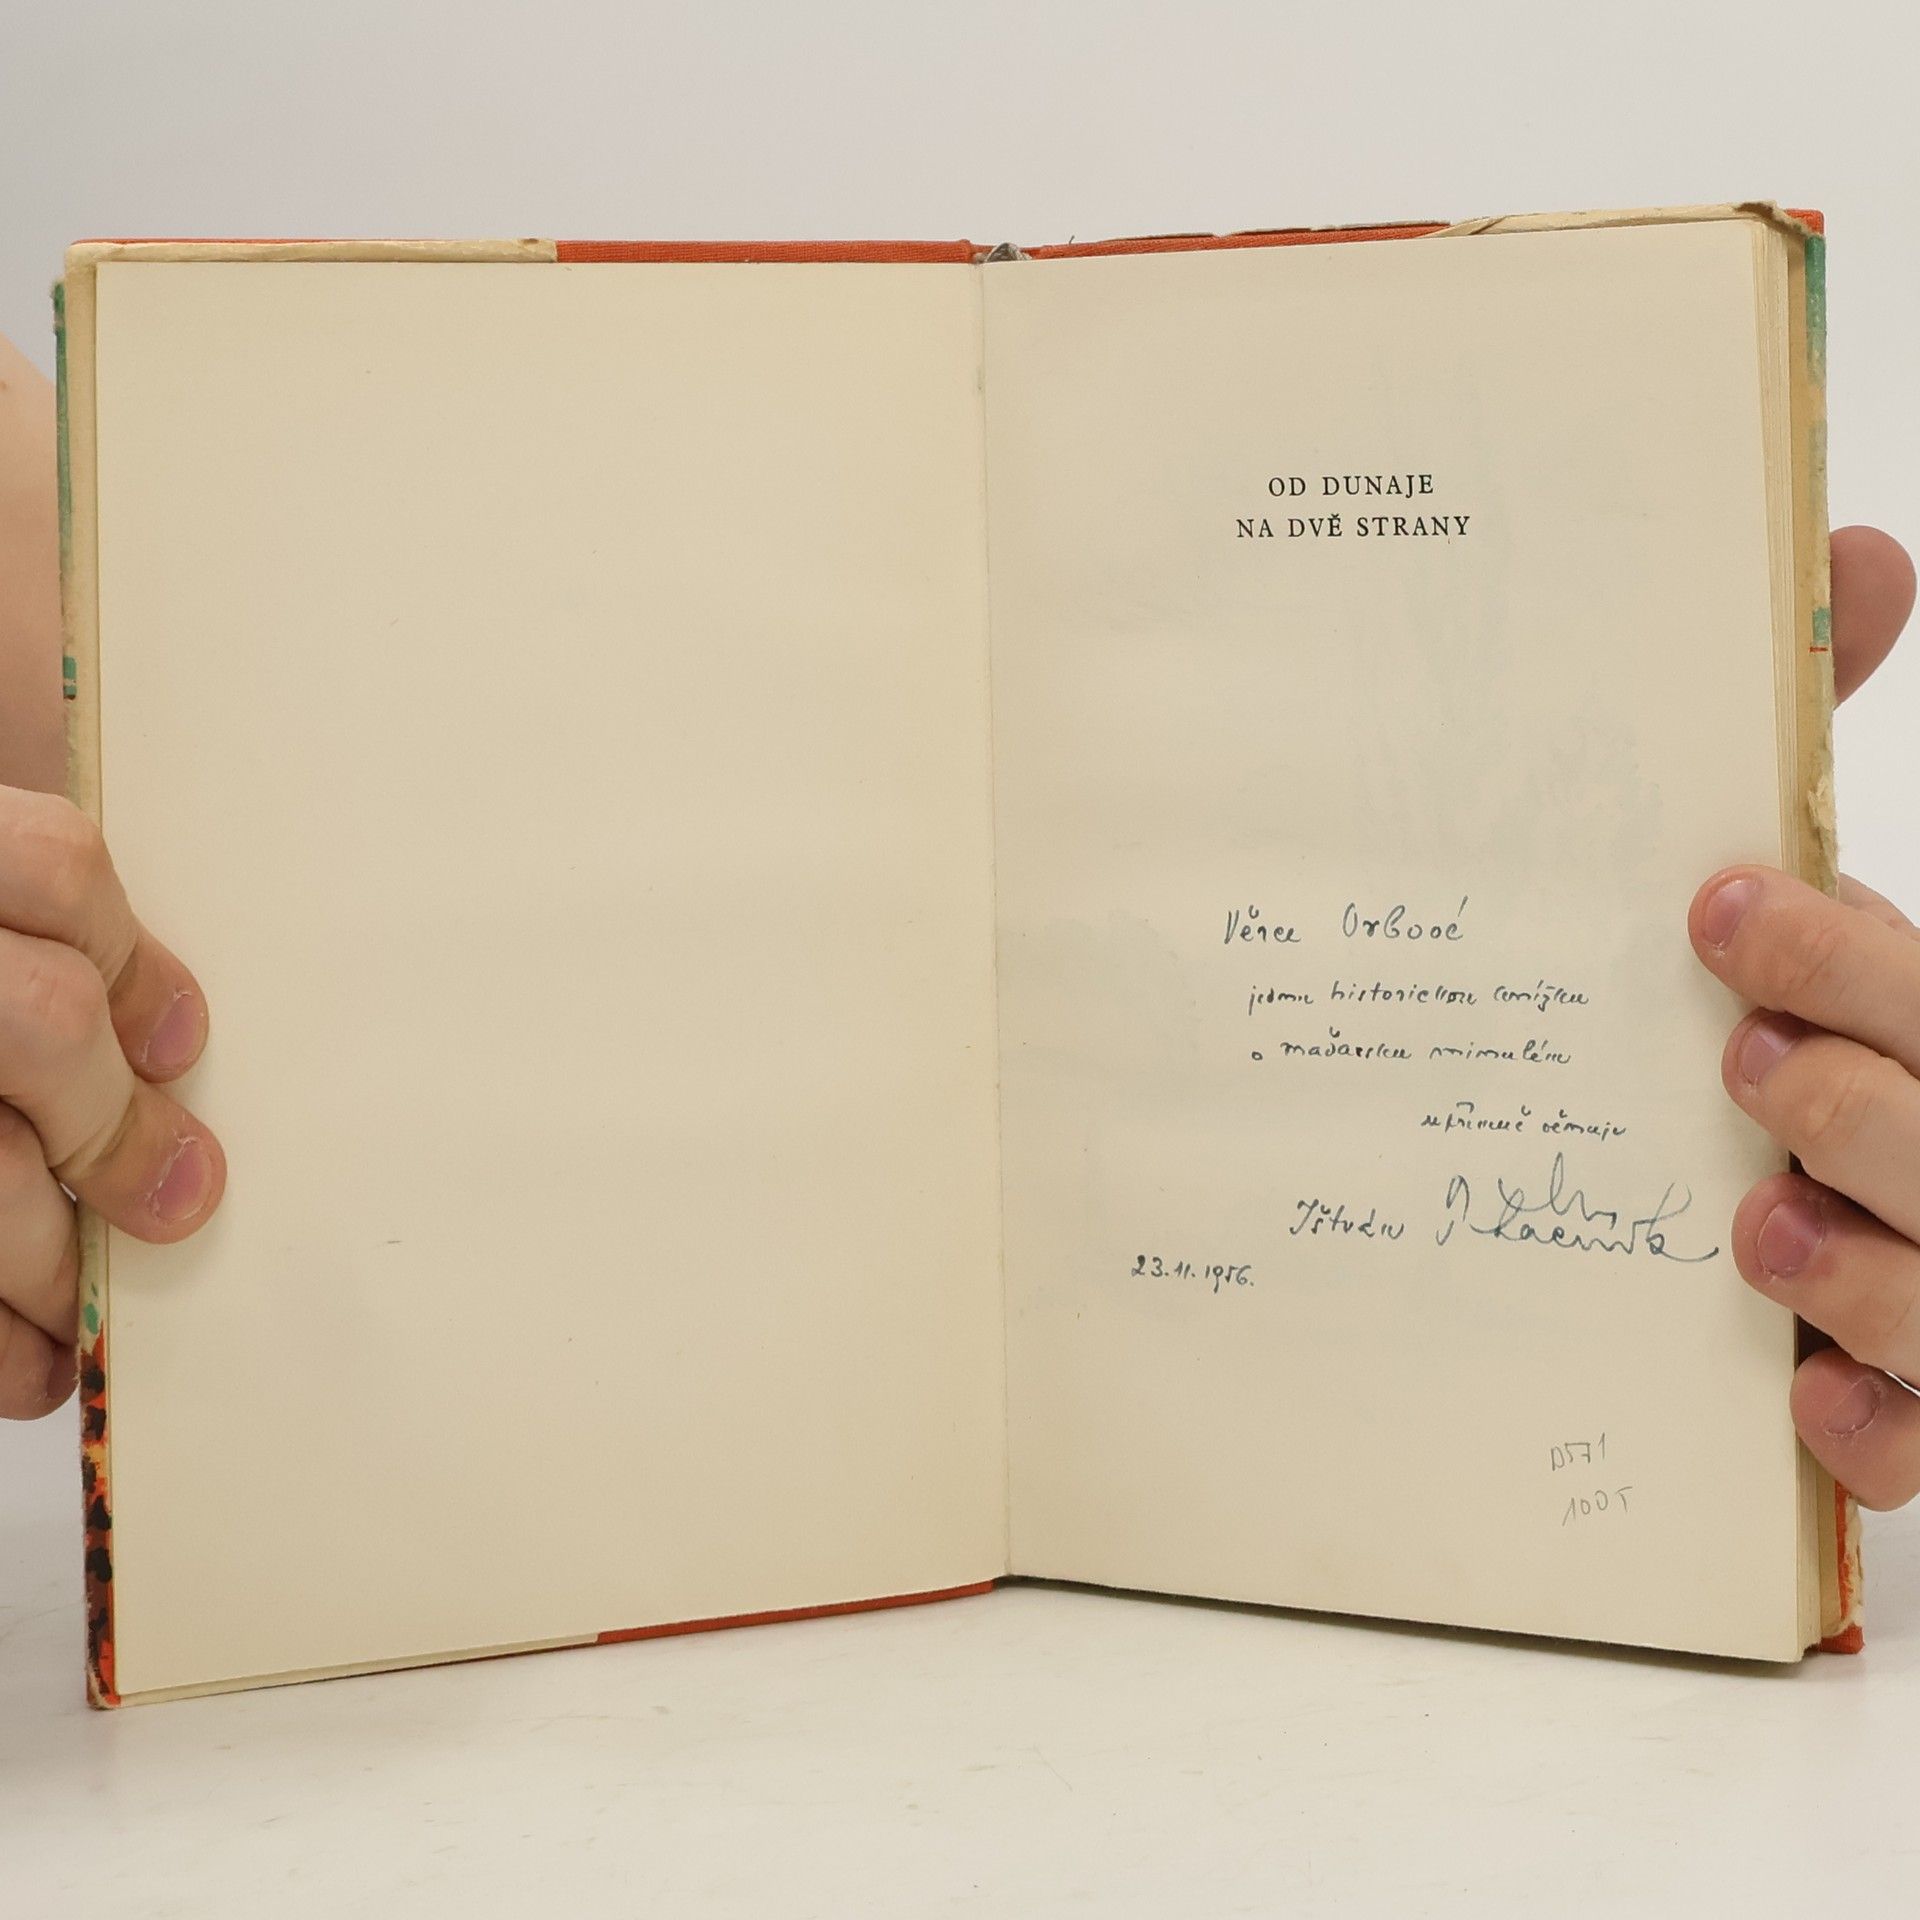 OD DUNAJE
NA DVĚ STRANY
Věrce Vrbové
jednu historickou knížku
o maďarsku minulém
upřímně věnuje
Ištván
23.11.1956.
D571
100T